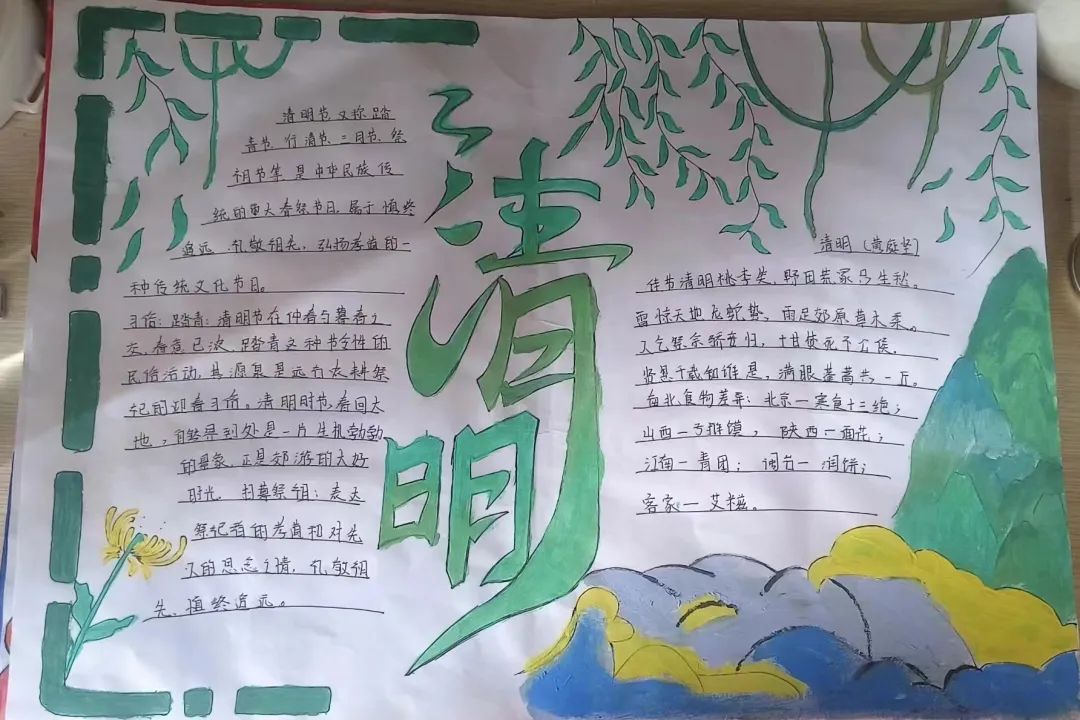 清明
清明节又称踏
青节、行清节、三月节、祭
祖节等,是中华民族传
统的重大春祭节日,属于慎终
追远、礼敬祖先、弘扬孝道的一
种传统文化节日。
习俗:踏青:清明节在仲春与暮春之
交,春意已浓,踏青这种节令性的
民俗活动,其源其是远古农耕祭
祀的迎春习俗。清明时节,春回大
地,自然界到处是一片生机勃勃
的景象,正是郊游的大好
时光。扫墓祭祖:表达
祭祀者的孝道和对先
人的思念之情,礼敬祖
先,慎终追远。
清明(黄庭坚)
佳节清明桃李笑,野田荒冢 生愁。
雷惊天地龙蛇蛰,雨足郊原草木柔。
人乞祭余骄妾归,士甘焚死不公侯。
贤愚千载知谁是,满眼蓬蒿共一丘。
南北食物差异:北京一寒食十三绝;
山西一子推馍,陕西一面花;
江南一青团;闽 一润饼;
客家一艾糍。